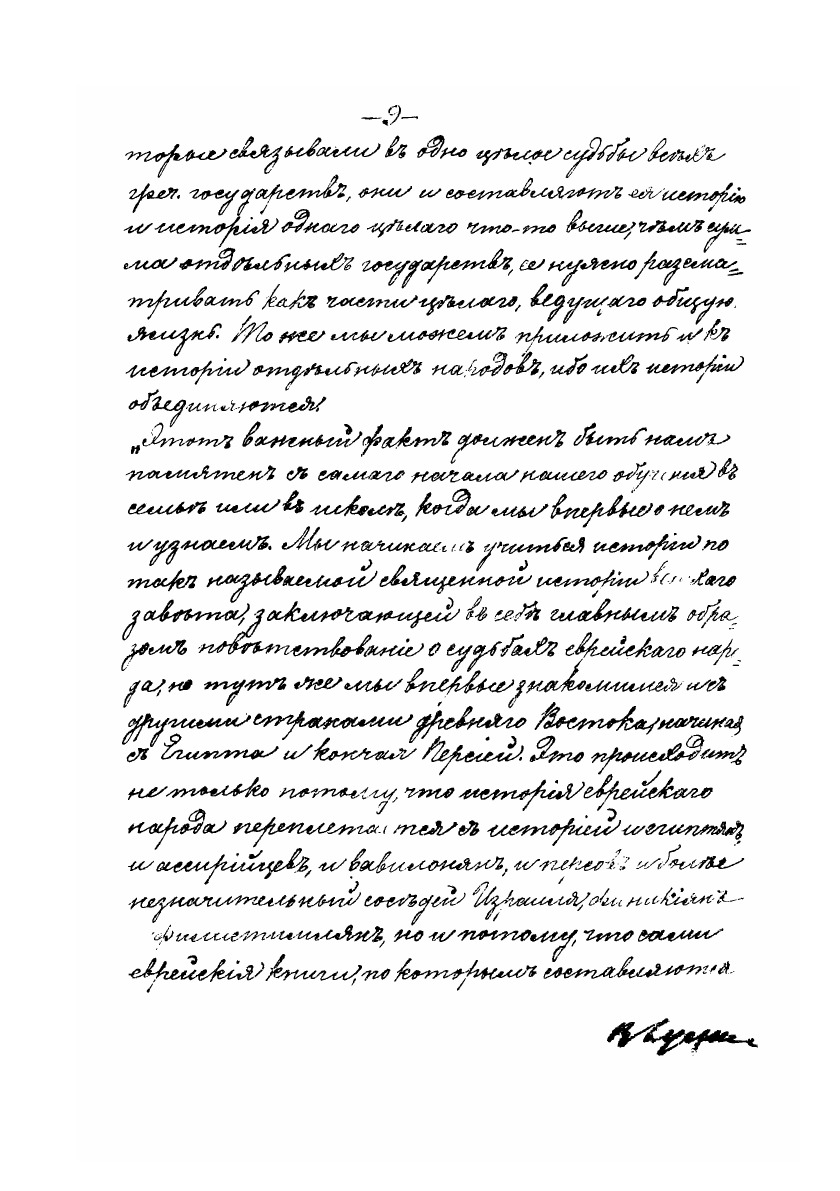 —9—
торые связывали въ одно цѣлое судьбы всѣхъ
греч. государствъ, они и составляютъ ея исторію
и исторія однаго цѣлаго что-то выше, чѣмъ сум=
ма отдѣльныхъ государствъ, ее нужно разсма=
тривать какъ части цѣлаго, ведущаго общую
жизнь. То же мы можемъ приложить и къ
исторіи отдѣльныхъ народовъ, ибо ихъ исторіи
объединяются!
„Этотъ важный фактъ долженъ быть намъ
памятенъ съ самаго начала нашего обученія въ
семьѣ или въ школѣ, когда мы впервые о немъ
и узнаемъ. Мы начинаемъ учиться исторіи по
такъ называемой священной исторіи ветхаго
завѣта, заключающей въ себѣ главнымъ обра=
зомъ повѣствованіе о судьбахъ еврейскаго наро-
да, но тутъ же мы впервые знакомимся и съ
другими странами древняго Востока, начиная
съ Египта и кончая Персіей. Это происходитъ
не только потому, что исторія еврейскаго
народа переплетается съ исторіей и египтянъ,
и ассирійцевъ, и вавилонянъ, и персовъ и болѣе
незначительный сосѣдей Израиля, финикіянъ
филистимлянъ, но и потому, что сами
еврейскія книги, по которымъ составляются